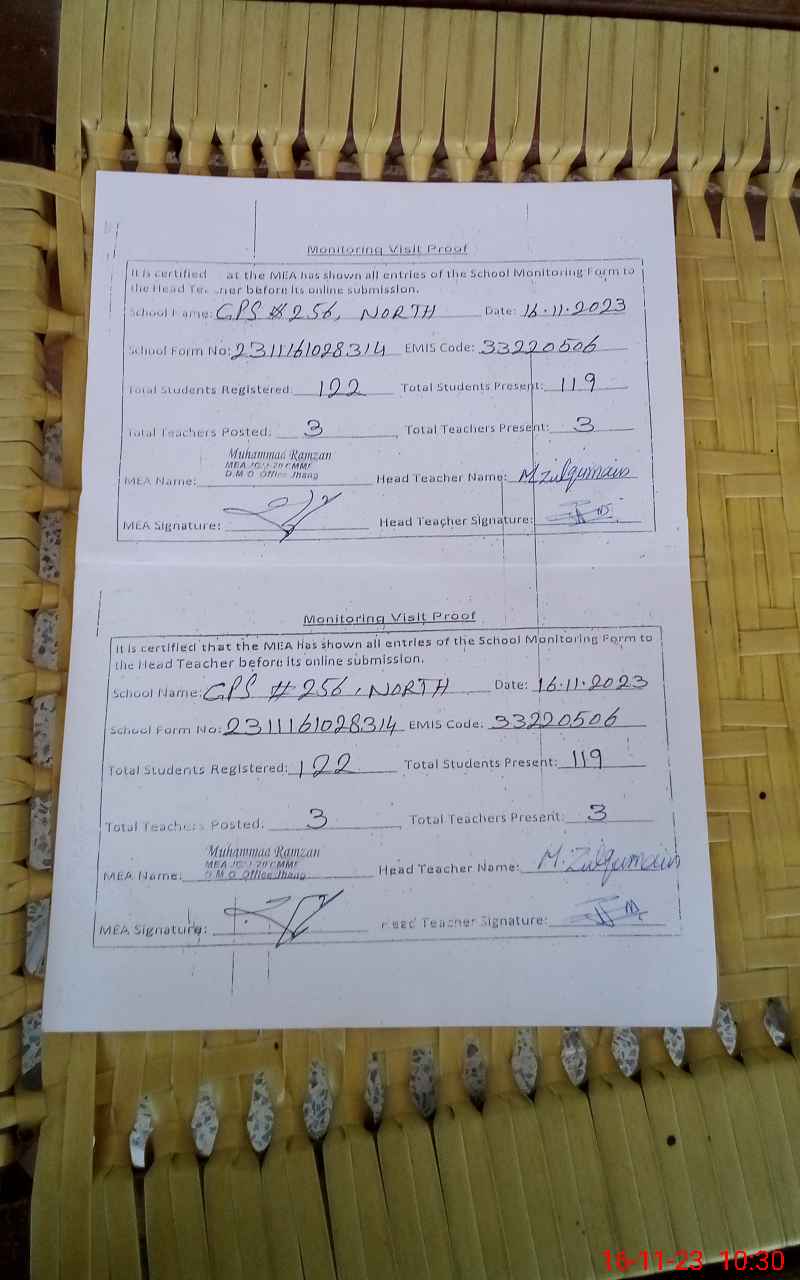 Monitoring Visit Proof
It is certified at the MEA has shown all entries of the School Monitoring Form to
the Head before its online submission.
School Name: GPS # 256, NORTH Date: 16.11.2023
School Form No: 2311161028314 EMIS Code: 33220506
Total Students Registered: 122 Total Students Present: 119
Total Teachers Posted: 3 Total Teachers Present: 3
Muhammad Ramzan
D.M.O Office Jhang
MEA Name: Head Teacher Name: M Zulqurnain
MEA Signature: Head Teacher Signature:
Monitoring Visit Proof
It is certified that the MEA has shown all entries of the School Monitoring Form to
the Head Teacher before its online submission.
School Name: GPS # 256, NORTH Date: 16.11.2023
School Form No: 2311161028314 EMIS Code: 33220506
Total Students Registered: 122 Total Students Present: 119
Total Teachers Posted: 3 Total Teachers Present: 3
Muhammad Ramzan
D.M.O Office Jhang
MEA Name: Head Teacher Name: M. Zulqurnain
MEA Signature: Head Teacher Signature:
16-11-23 10:30